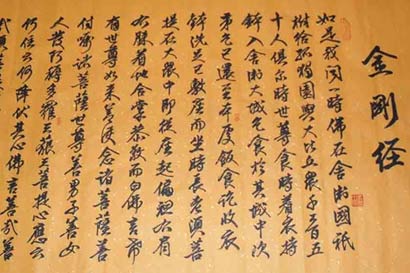 金剛经
如是我闻一時佛在舍衛國祇
树给孤独園與大比丘眾千二百五
十人俱尔時世尊食時着衣持
鉢入舍衛大城乞食於其城中次
第乞已還至本處飯食訖收衣
鉢洗足已敷座而坐時長老須菩
提在大眾中即從座起偏袒右肩
右膝着地合掌恭敬而白佛言希
有世尊如来善護念諸菩薩善
付嘱諸菩薩世尊善男子善女
人發阿耨多羅三藐三菩提心應云
何住云何降伏其心佛言善哉善